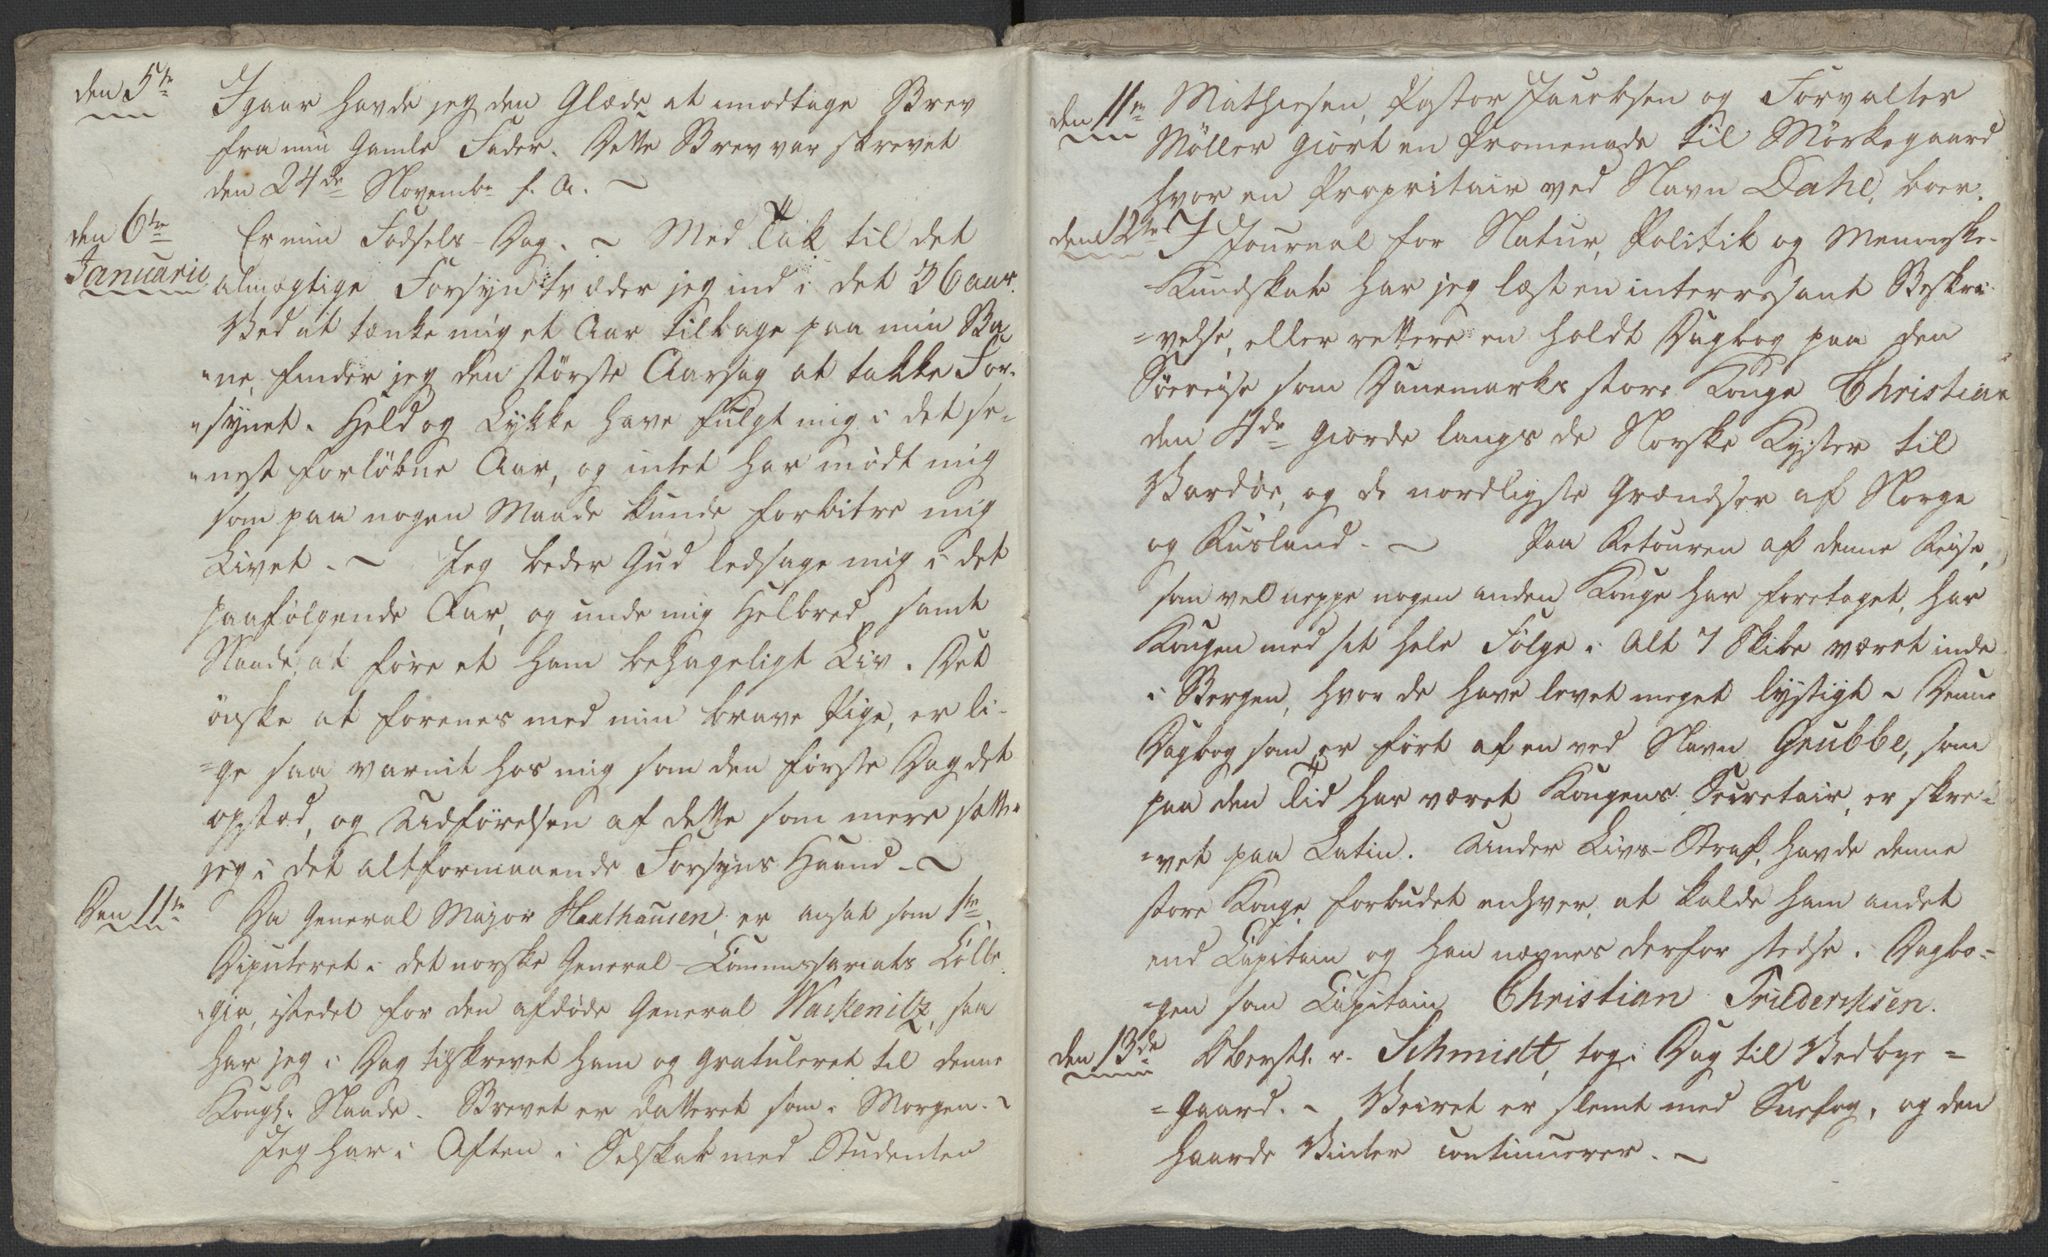 den 5te
Igaar havde jeg den Glæde at imodtage Brev
fra min Gamle Fader. Dette Brev var skrevet
den 24de Novembr f. A. ~
den 6te Januarii
Er min Fødsels-Dag. ~ Med Tak til det
almægtige Forsyn træder jeg ind i det 36 aar.
Ved at tænke mig et Aar tilbage paa min Ba-
=ne, finder jeg den störste Aarsag at takke For-
=synet. Held og Lykke have fulgt mig i det se-
=nest forløbne Aar, og intet har mödt mig
som paa nogen Maade kunde forbitre mig
Livet. ~ Jeg beder Gud ledsage mig i det
paafølgende Aar, og unde mig Helbred samt
Naade, at føre et ham behageligt Liv. Det
önske at forenes med min brave Pige, er li-
=ge saa varmt hos mig som den første Dag det
opstod, og Udförelsen af dette som mere sætter
jeg i det altformaaende Forsyns Haand. ~
Den 11te
Da General Major Haxthausen, er ansat som 1te
Deputeret i det norske General-Commissariats Colle-
=gie, istedet for den afdøde General Wackenitz, saa
har jeg i Dag tilskrevet ham og gratuleret til denne
Kongl. Naade. Brevet er datteret som i Morgen. ~
Jeg har i Aften i Selskab med Studenten
den 11te
Mathiesen, Pastor Jacobsen og Forvalter
Möller giort en Promenade til Mörkegaard
hvor en Propritair ved Navn Dahl, boer.
den 12te
I Journal for Natur, Politik og Menneske-
Kundskab har jeg læst en interresant Beskri-
=velse, eller rettere en holdt Dagbog paa den
Söereise som Danemarks store Konge Christian
den 4de giorde langs de Norske Kyster til
Vardöe, og de nordligste Grændser af Norge
og Rusland. ~ Paa Retouren af denne Reise,
som vel neppe nogen anden Konge har foretaget, har
Kongen med sit hele Følge i Alt 7 Skibe været inde
i Bergen, hvor de have levet meget lystigt ~ Denne
Dagbog som er fört af en ved Navn Grubbe, som
paa den Tid har været Kongens Secretair, er skre-
=vet paa Latin. Under Livs-Straf, havde denne
store Konge forbudet enhver, at kalde ham andet
end Capitain og han nævnes derfor stedse i Dagbo-
=gen som Capitain Christian Friderichsen.
den 13de
Oberstl. v. Schmidt, tog i Dag til Vedbye-
=Gaard. ~ Veiret er slemt med Snefog, og den
haarde Vinter continuerer. ~